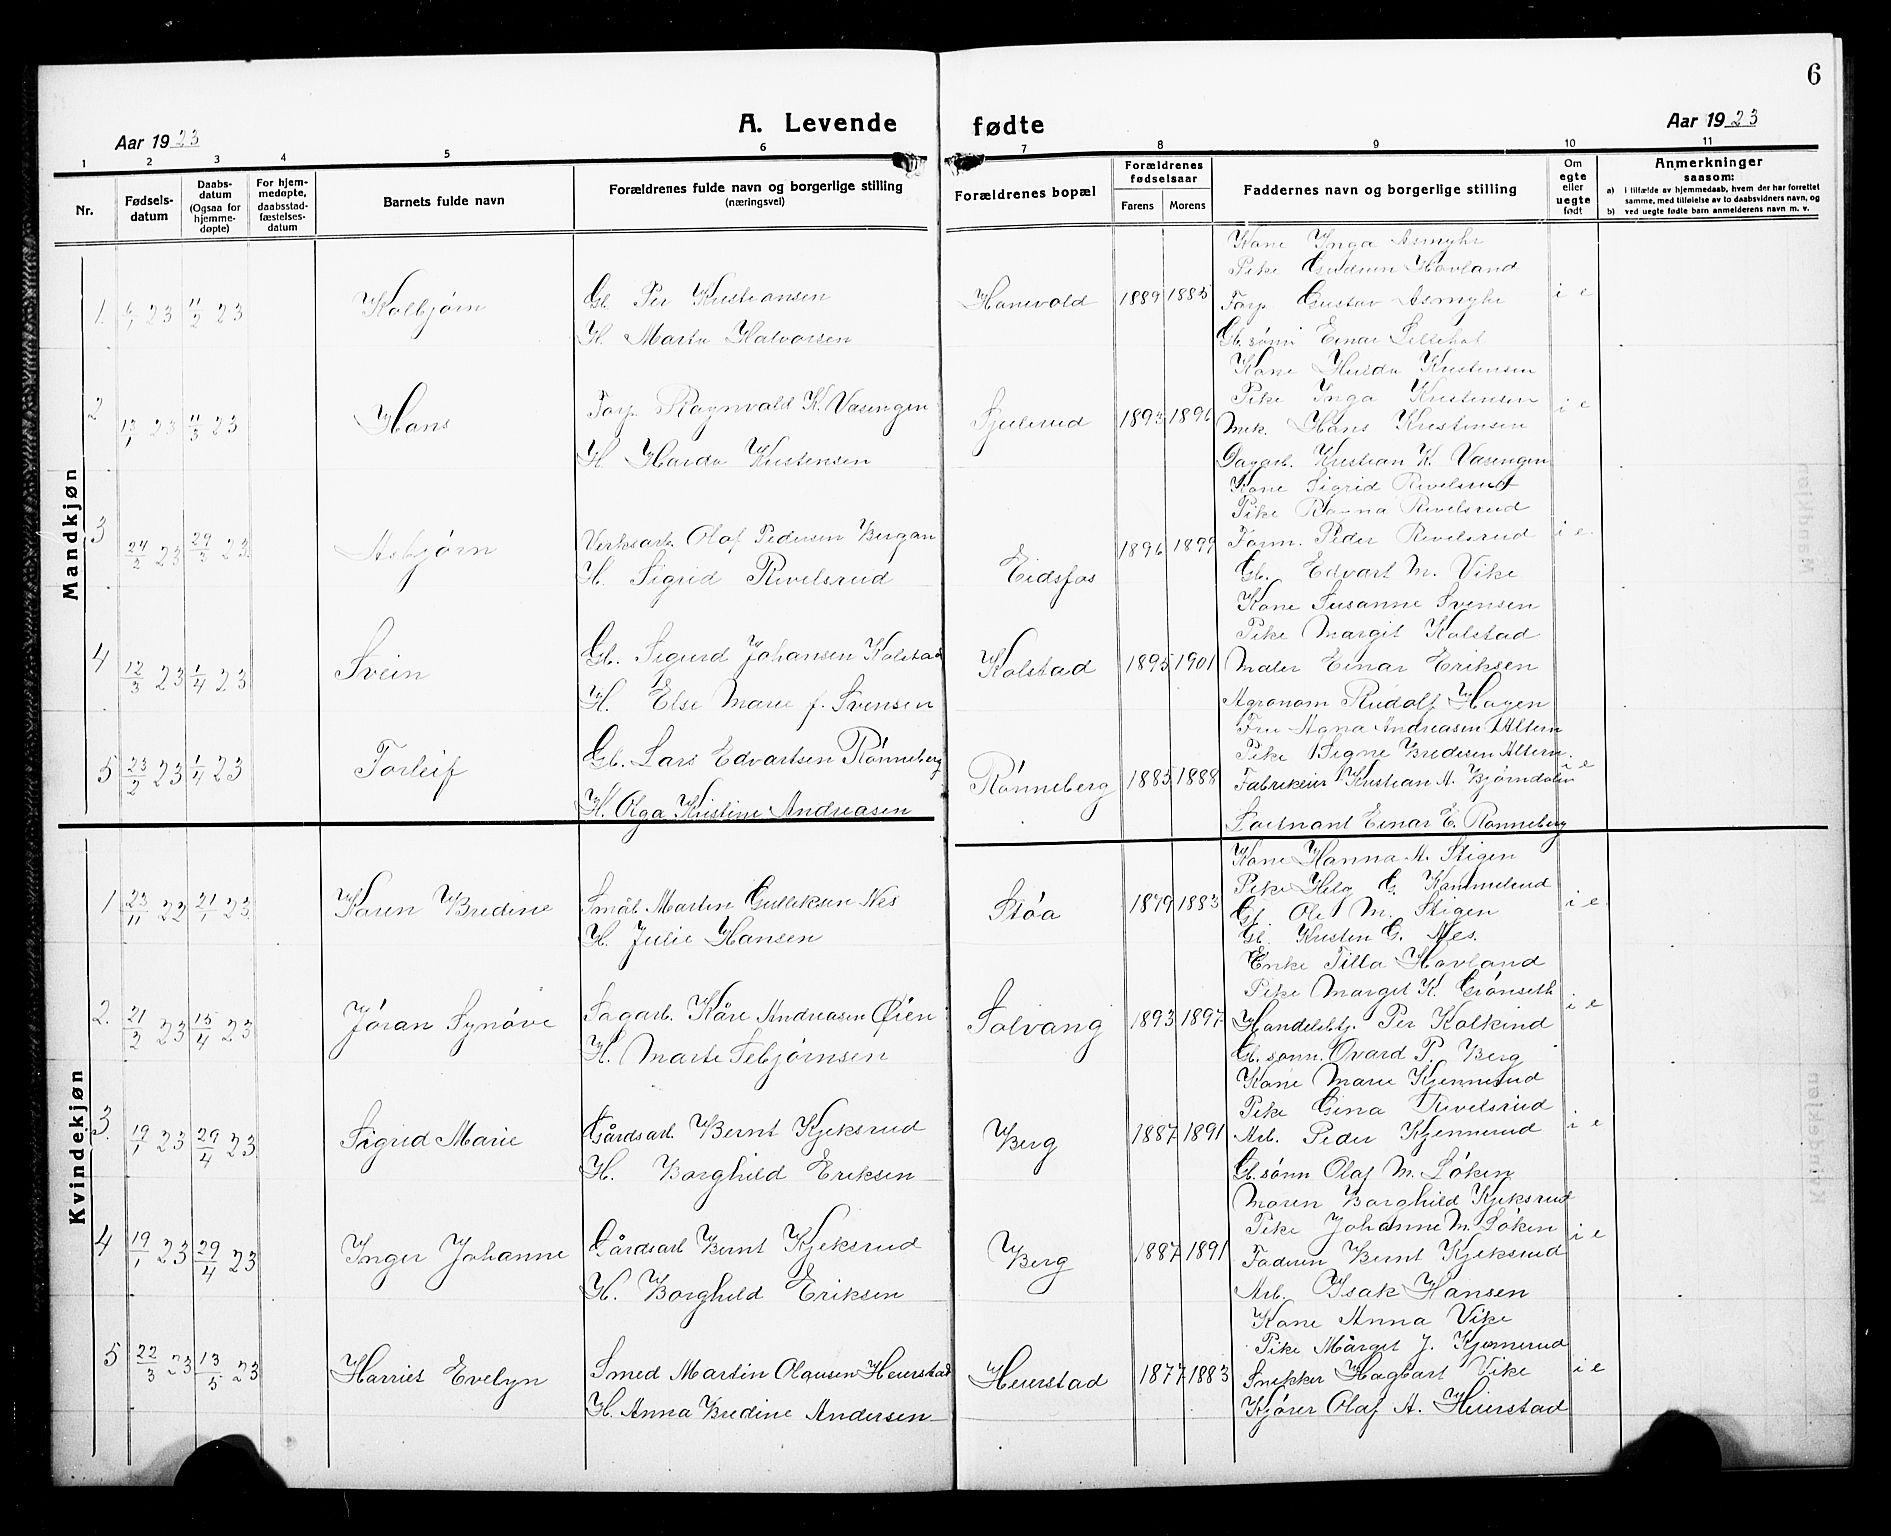 6
A. Levende fødte
Aar 1923
Aar 1923
1 2 3 4 5 6 7 8 9 10 11
Nr.
Fødsels-datum
Daabs-datum (Ogsaa for hjemme-døpte)
For hjem-medøpte, daabsstad-fæstelses-datum
Barnets fulde navn
Forældrenes fulde navn og borgerlige stilling (næringsvei)
Forældrenes bopæl
Forældrenes fødselsaar
Farens Morens
Faddernes navn og borgerlige stilling
Om egte eller uegte født
Anmerkninger saasom:
a) I tilfælde av hjemmedaab, hvem der har forrettet samme, med tilføielse av to daabsvidners navn, og
b) ved uegte fødte barn anmelderens navn m. v.
Mandkjøn
Kone Inga Asmyhr
Pike Gudrun Hovland
1. 23 11/2 23 Kolbjørn Gb. Per Kristiansen Hanevold 1889 1885 Forp. Gustav Asmyhr i e
H. Marta Halvorsen
Gb. sønn Einar Lillehot
Kone Hulda Kristensen
Pike Inga Kristensen
2 13/1 23 11/3 23 Hans Forp. Ragnvald K. Vasengen Sjulsrud 1893 1896 Mek. Hans Kristensen i e
H. Harda Kristensen
Dagarb. Kristian K. Vasengen
Kone Sigrid Revelsrud
Pike Ragna Revelsrud
3 24/2 23 29/3 23 Asbjørn Verksarb. Olaf Pedersen Bergan Eidsfos 1896 1899 Form. Peder Revelsrud i e.
H. Sigrid Revelsrud
Gb. Edvart M. Vike
Kone Susanne Svensen
Pike Margit Kolstad
4 12/3 23 1/4 23 Svein Gb. Sigurd Johansen Kolstad Kolstad 1895 1901 Maler Einar Eriksen
H. Else Marie f. Svensen
Agronom Rudolf Hagen
Fru Agna Andreasen Altern
Pike Signe Bredesen Altern.
5 23/2 23 1/4 23 Torleif Gb. Lars Edvartsen Rønneberg Rønneberg 1885 1888 Fabrikeier Kristian A. Bjørndalen i e
H. Olga Kristine Andreasen
Løitnant Einar E. Rønneberg
Kvindekjøn
Kone Hanna A. Stigen
Pike Helg G. Kammelrud
1 23/11 22 21/1 23 Karen Bredine Småb. Martin Gulliksen Nes Støa 1879 1883 Gb. Ole M. Stigen i e
H. Julie Hansen
Gb. Kristen G. Nes.
Enke Tilla Hovland
Pike Margit K. Grønseth
2. 21/2 23 15/4 23 Jøran Synøve Sagarb. Kåre Andreasen Øien Solvang 1893 1897 Handelsbtj. Per Kolkind i e
H. Marte Sebjørnsen
Gb. sønn. Ovard P. Berg
Kone Marie Kjennerud
Pike Gina Revelsrud
3. 19/1 23 29/4 23 Sigrid Marie Gårdsarb. Bernt Kjeksrud Berg 1887 1891 Arb. Peder Kjennerud i e
H. Borghild Eriksen
Gb. sønn Olaf M. Løken
Moren Borghild Kjeksrud
Pike Johanne M. Løken
4 19/1 23 29/4 23 Inger Johanne Gårdsarb Bernt Kjeksrud Berg 1887 1891 Faderen Bernt Kjeksrud i e
H. Borghild Eriksen
Arb. Isak Hansen
Kone Anna Vike
Pike Márget J. Kjennerud
5 22/3 23 13/5 23 Harriet Evelyn Smed Martin Olausen Heierstad Heierstad 1877 1883 Snekker Hagbart Vike i e
H. Anna Bredine Andersen
Kjører Olaf A. Heierstad